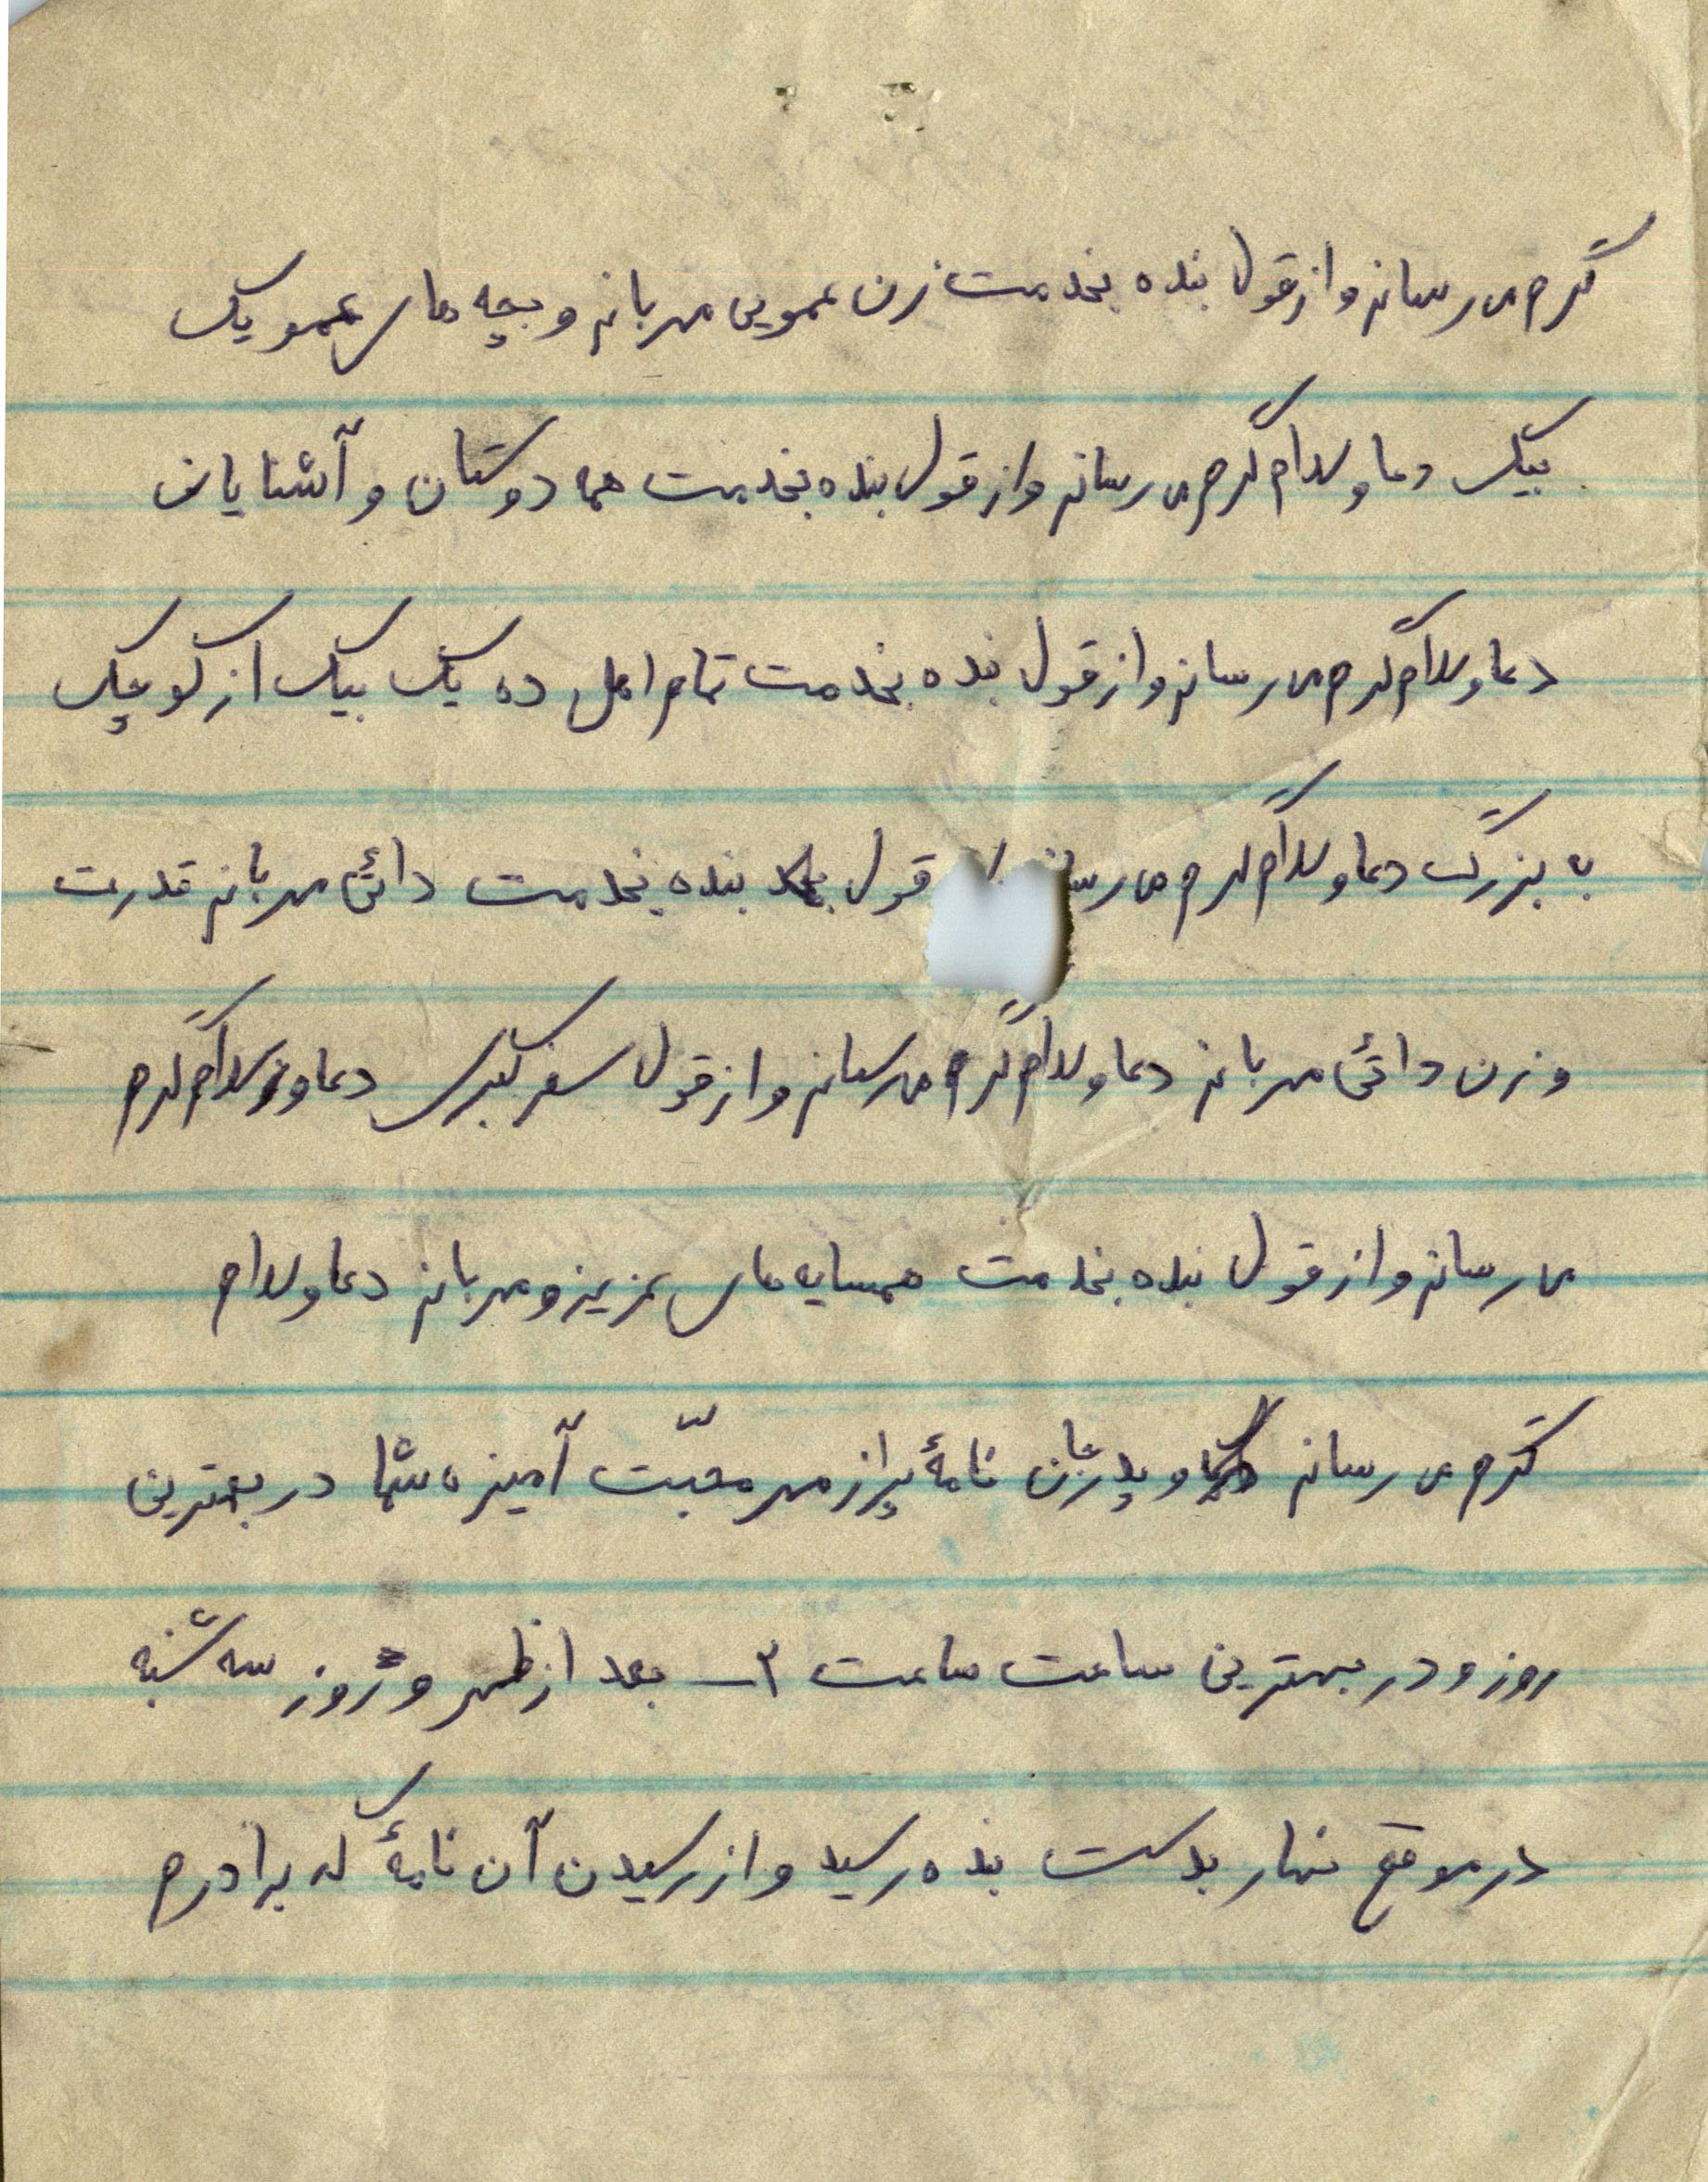 گرم می رسانم و از قول بنده بخدمت زن عمویی مهربانم و بچه های عمو یک
بیک دعا و سلام گرم می رسانم و از قول بنده بخدمت همه دوستان و آشنایان
دعا و سلام گرم می رسانم و از قول بنده بخدمت تمام اهل ده یک بیک از کوچک
به بزرگ دعا و سلام گرم می رسانم قول بنده بخدمت دائی مهربانم قدرت
و زن دائی مهربانم دعا و سلام گرم می رسانم و از قول دعا و سلام گرم
می رسانم و از قول بنده بخدمت همسایه های عزیز و مهربانم دعا و سلام
گرم می رسانم و پدر جان نامهٔ پر از مهر محبّت آمیزه شما در بهترین
روز و در بهترین ساعت ساعت ۲ بعد از ظهر و روز سه شنبه
در موقع نهار بدست بنده رسید و از رسیدن آن نامهٔ که برادرم